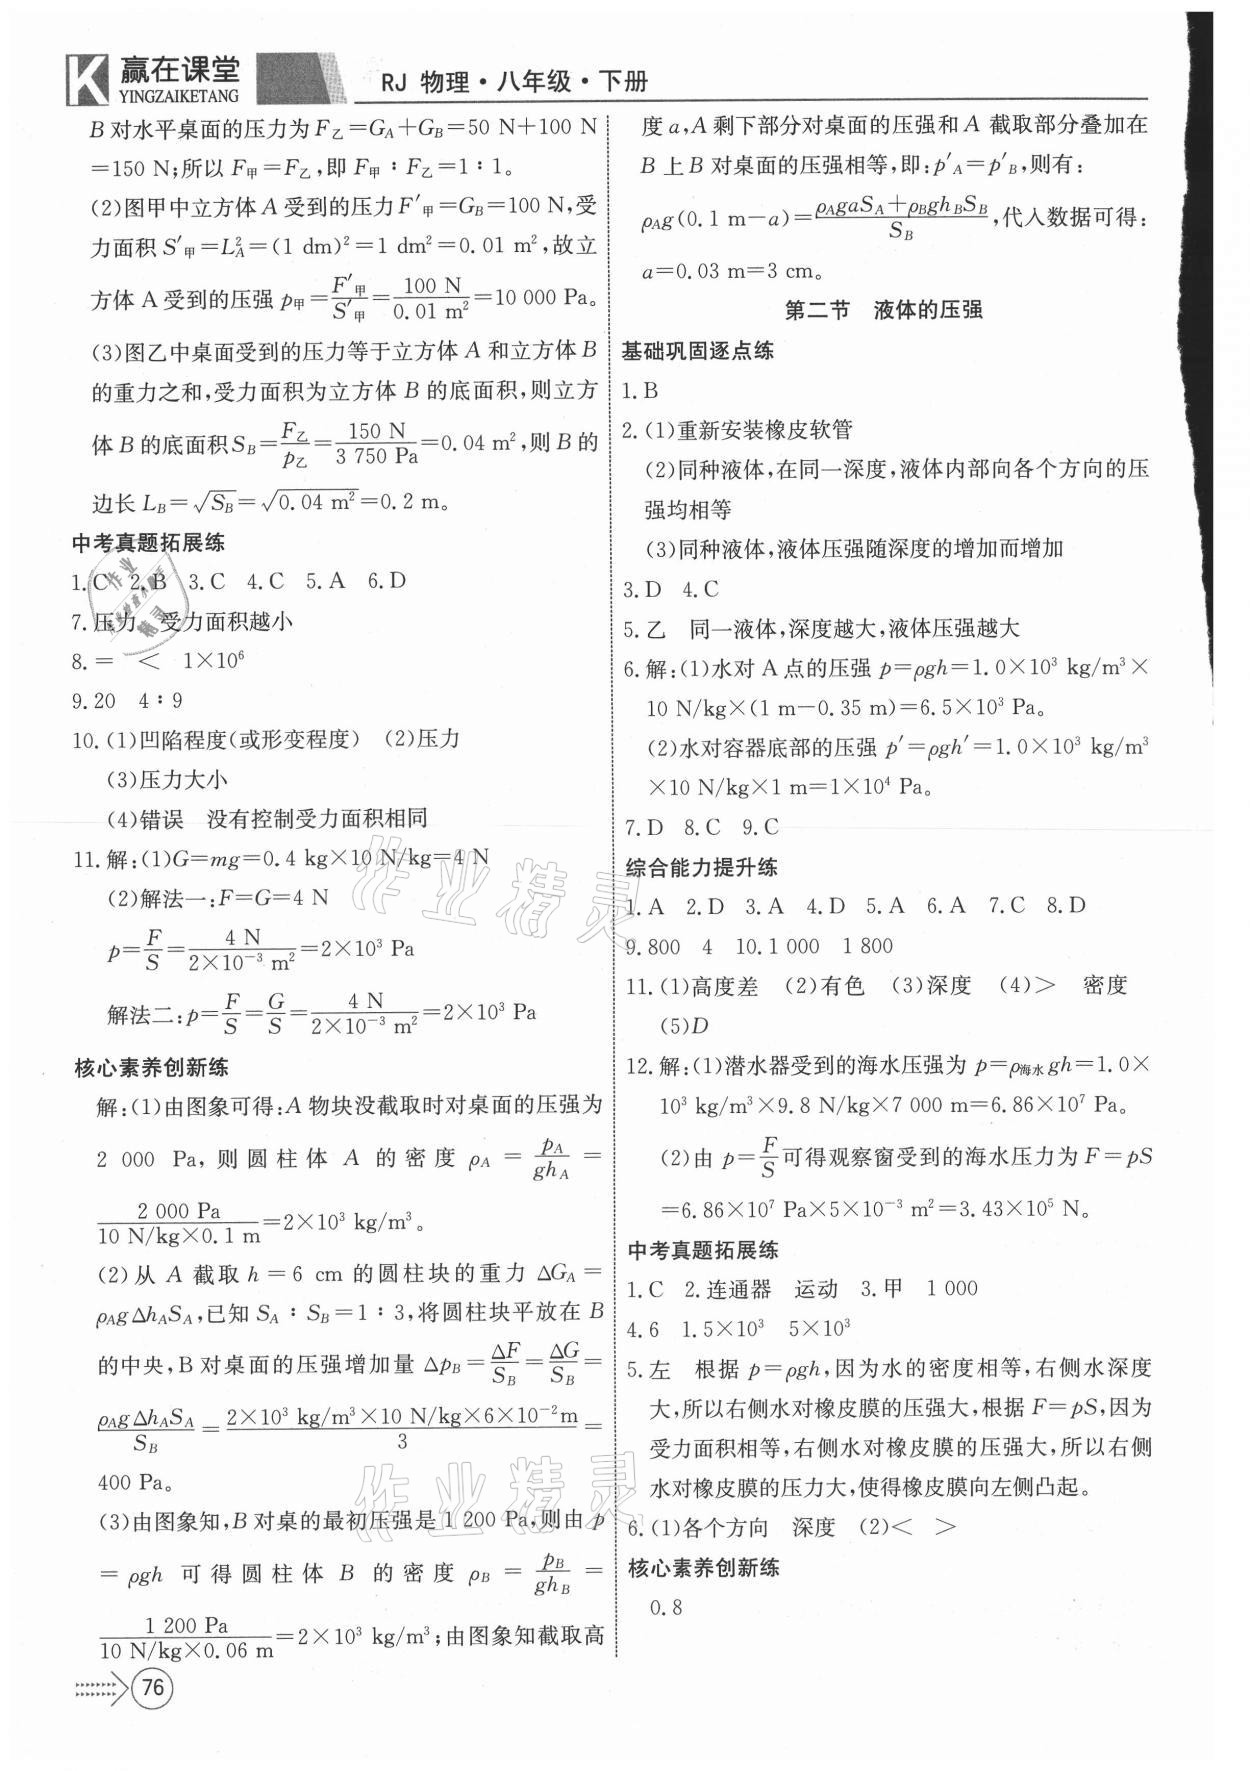 赢在课堂
YINGZAIKETANG
RJ 物理·八年级·下册
B对水平桌面的压力为F乙=G_A+G_B=50 N+100 N
=150 N;所以F甲=F乙,即F甲∶F乙=1∶1。
(2)图甲中立方体A受到的压力F′甲=G_B=100 N,受
力面积S′甲=L_A²=(1 dm)²=1 dm²=0.01 m²,故立
方体A受到的压强p甲=F′甲/S′甲=100 N/0.01 m²=10 000 Pa。
(3)图乙中桌面受到的压力等于立方体A和立方体B
的重力之和,受力面积为立方体B的底面积,则立方
体B的底面积S_B=F乙/p乙=150 N/3 750 Pa=0.04 m²,则B的
边长L_B=√S_B=√0.04 m²=0.2 m。
中考真题拓展练
1.C 2.B 3.C 4.C 5.A 6.D
7.压力 受力面积越小
8.= < 1×10⁶
9.20 4∶9
10.(1)凹陷程度(或形变程度) (2)压力
(3)压力大小
(4)错误 没有控制受力面积相同
11.解:(1)G=mg=0.4 kg×10 N/kg=4 N
(2)解法一:F=G=4 N
p=F/S=4 N/2×10⁻³ m²=2×10³ Pa
解法二:p=F/S=G/S=4 N/2×10⁻³ m²=2×10³ Pa
核心素养创新练
解:(1)由图象可得:A物块没截取时对桌面的压强为
2 000 Pa,则圆柱体A的密度ρ_A=p_A/gh_A=
2 000 Pa/10 N/kg×0.1 m=2×10³ kg/m³。
(2)从A截取h=6 cm的圆柱块的重力ΔG_A=
ρ_AgΔh_AS_A,已知S_A∶S_B=1∶3,将圆柱块平放在B
的中央,B对桌面的压强增加量Δp_B=ΔF/S_B=ΔG/S_B=
ρ_AgΔh_AS_A/S_B=2×10³ kg/m³×10 N/kg×6×10⁻²m/3=
400 Pa。
(3)由图象知,B对桌的最初压强是1 200 Pa,则由p
=ρgh可得圆柱体B的密度ρ_B=p_B/gh_B=
1 200 Pa/10 N/kg×0.06 m=2×10³ kg/m³;由图象知截取高
76
度a,A剩下部分对桌面的压强和A截取部分叠加在
B上B对桌面的压强相等,即:p′_A=p′_B,则有:
ρ_Ag(0.1 m−a)=ρ_AgaS_A+ρ_Bgh_BS_B/S_B,代入数据可得:
a=0.03 m=3 cm。
第二节 液体的压强
基础巩固逐点练
1.B
2.(1)重新安装橡皮软管
(2)同种液体,在同一深度,液体内部向各个方向的压
强均相等
(3)同种液体,液体压强随深度的增加而增加
3.D 4.C
5.乙 同一液体,深度越大,液体压强越大
6.解:(1)水对A点的压强p=ρgh=1.0×10³ kg/m³×
10 N/kg×(1 m−0.35 m)=6.5×10³ Pa。
(2)水对容器底部的压强p′=ρgh′=1.0×10³ kg/m³
×10 N/kg×1 m=1×10⁴ Pa。
7.D 8.C 9.C
综合能力提升练
1.A 2.D 3.A 4.D 5.A 6.A 7.C 8.D
9.800 4 10.1 000 1 800
11.(1)高度差 (2)有色 (3)深度 (4)> 密度
(5)D
12.解:(1)潜水器受到的海水压强为p=ρ海水gh=1.0×
10³ kg/m³×9.8 N/kg×7 000 m=6.86×10⁷ Pa。
(2)由p=F/S可得观察窗受到的海水压力为F=pS
=6.86×10⁷ Pa×5×10⁻³ m²=3.43×10⁵ N。
中考真题拓展练
1.C 2.连通器 运动 3.甲 1 000
4.6 1.5×10³ 5×10³
5.左 根据p=ρgh,因为水的密度相等,右侧水深度
大,所以右侧水对橡皮膜的压强大,根据F=pS,因为
受力面积相等,右侧水对橡皮膜的压强大,所以右侧
水对橡皮膜的压力大,使得橡皮膜向左侧凸起。
6.(1)各个方向 深度 (2)< >
核心素养创新练
0.8
作业精灵
作业精灵